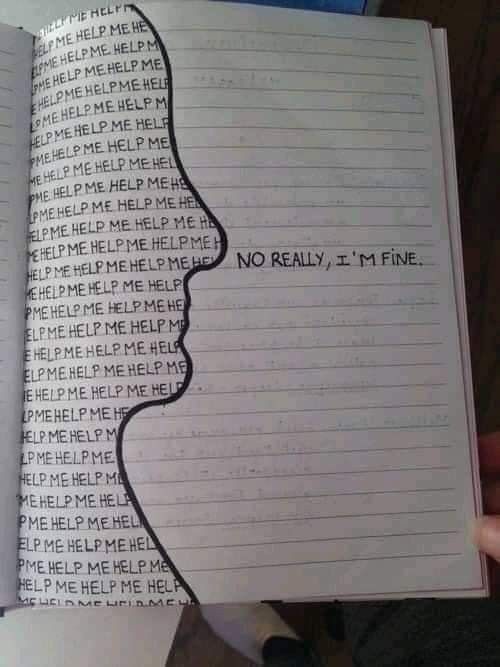 HELP ME HELP M
HELP ME HELP ME HE
ELP ME HELP ME HELP M
P ME HELP ME HELP ME
E HELP ME HELP ME HELP
LP ME HELP ME HELP M
HELP ME HELP ME HELP
P ME HELP ME HELP ME
ME HELP ME HELP ME HEL
P ME HELP ME HELP ME HE
LP ME HELP ME HELP ME HEL
ELP ME HELP ME HELP ME HE
ME HELP ME HELP ME HELP ME H
HELP ME HELP ME HELP ME HEL
NO REALLY, I'M FINE.
ME HELP ME HELP ME HELP
P ME HELP ME HELP ME HE
ELP ME HELP ME HELP ME
E HELP ME HELP ME HELP
ELP ME HELP ME HELP ME
E HELP ME HELP ME HELP
LP ME HELP ME HE
HELP ME HELP M
LP ME HELP ME
HELP ME HELP ME
ME HELP ME HELP
P ME HELP ME HELP
ELP ME HELP ME HEL
P ME HELP ME HELP ME
HELP ME HELP ME HELP
ME HELP ME HELP ME H